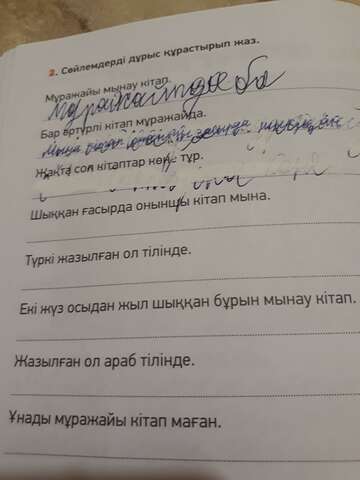 2. Сөйлемдерді дұрыс құрастырып жаз.
Мұражайы мынау кітап.
Мұражайтда ба
Бар әртүрлі кітап мұражайда.
Жақта сол кітаптар көне тұр.
Шыққан ғасырда оныншы кітап мына.
Түркі жазылған ол тілінде.
Екі жүз осыдан жыл шыққан бұрын мынау кітап.
Жазылған ол араб тілінде.
Ұнады мұражайы кітап маған.